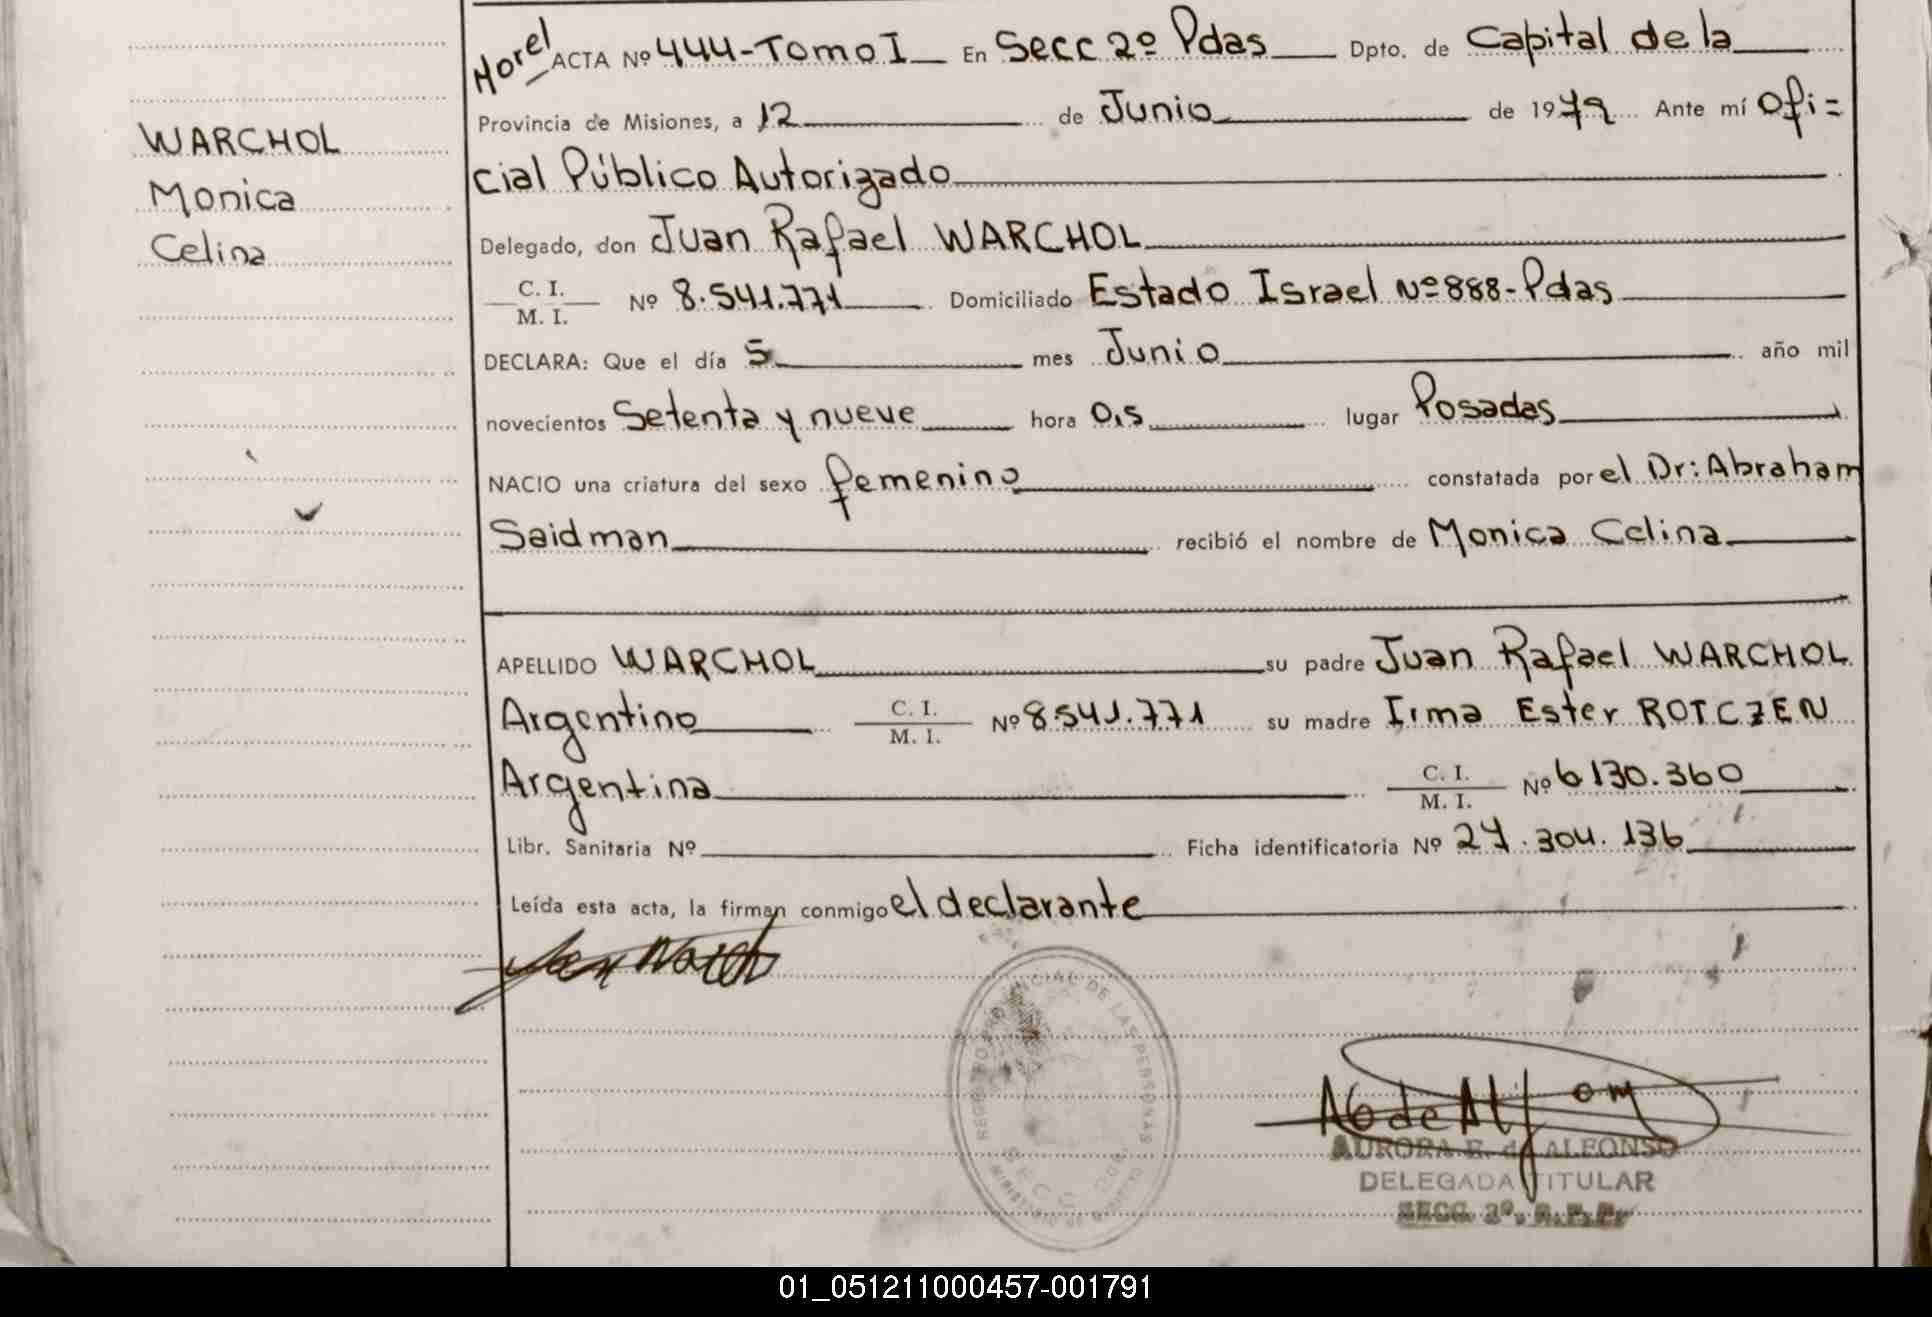 Morel ACTA Nº 444-Tomo I En Secc 2º Pdas Dpto. de Capital de la
Provincia de Misiones, a 12 de Junio de 1979 Ante mí Ofi=
WARCHOL
cial Público Autorizado
Monica
Delegado, don Juan Rafael WARCHOL
Celina
C. I.
M. I. Nº 8.541.771 Domiciliado Estado Israel Nº 888-Pdas
DECLARA: Que el día 5 mes Junio año mil
novecientos Setenta y nueve hora 0,5 lugar Posadas
NACIO una criatura del sexo femenino constatada por el Dr: Abraham
Saidman recibió el nombre de Monica Celina
APELLIDO WARCHOL su padre Juan Rafael WARCHOL
Argentino C. I. M. I. Nº 8.541.771 su madre Irma Ester ROTCZEN
Argentina C. I. M. I. Nº 6130.360
Libr. Sanitaria Nº Ficha identificatoria Nº 27.304.136
Leída esta acta, la firman conmigo el declarante
REGISTRO PROVINCIAL DE LAS PERSONAS
AURORA E. de ALFONSO
DELEGADA TITULAR
SECC. 2º. R.P.P.
01_051211000457-001791